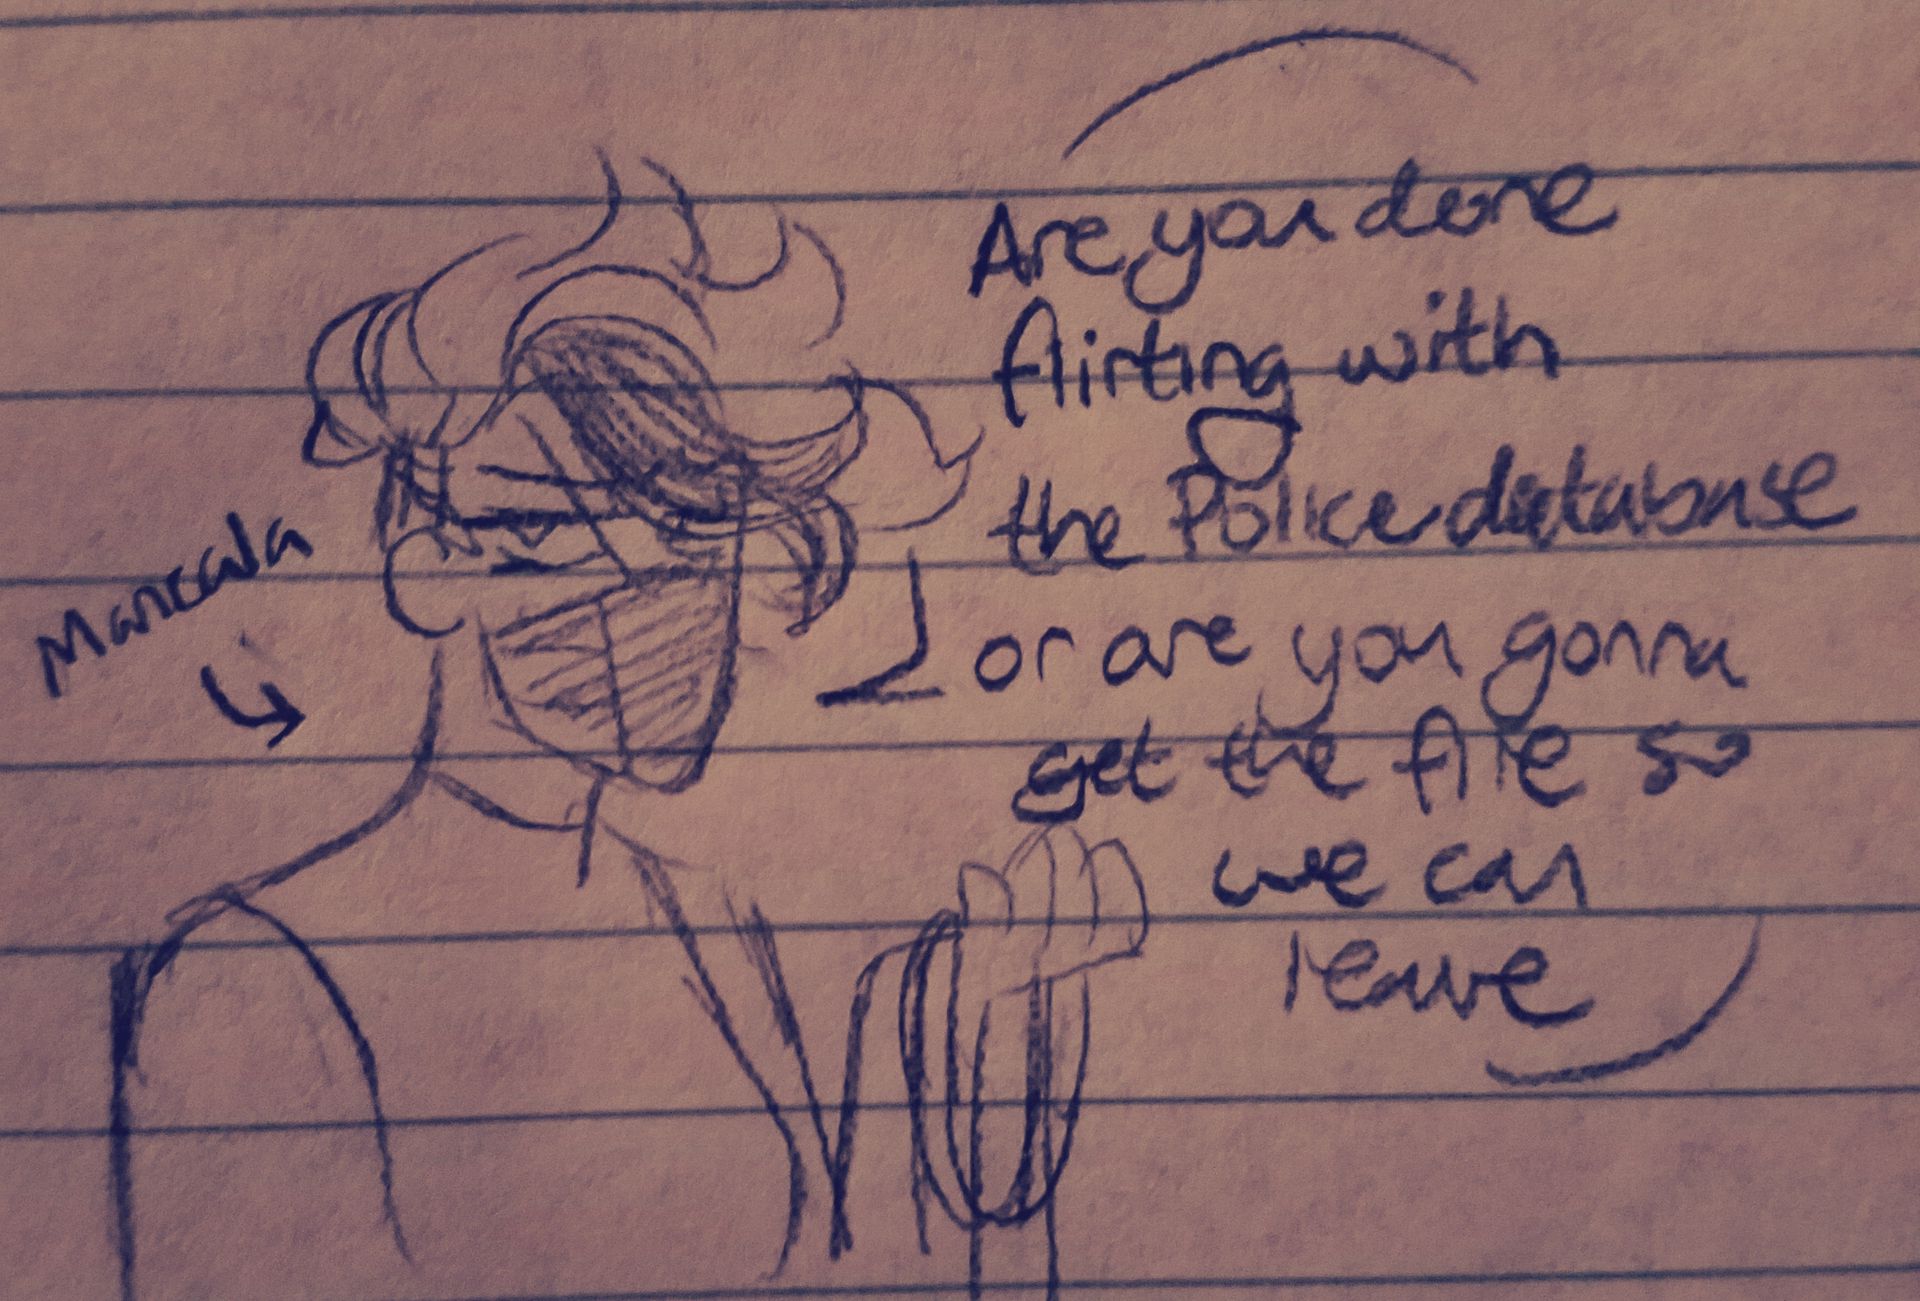 Mancala
Are you done
flirting with
the Police database
or are you gonna
get the file so
we can
leave